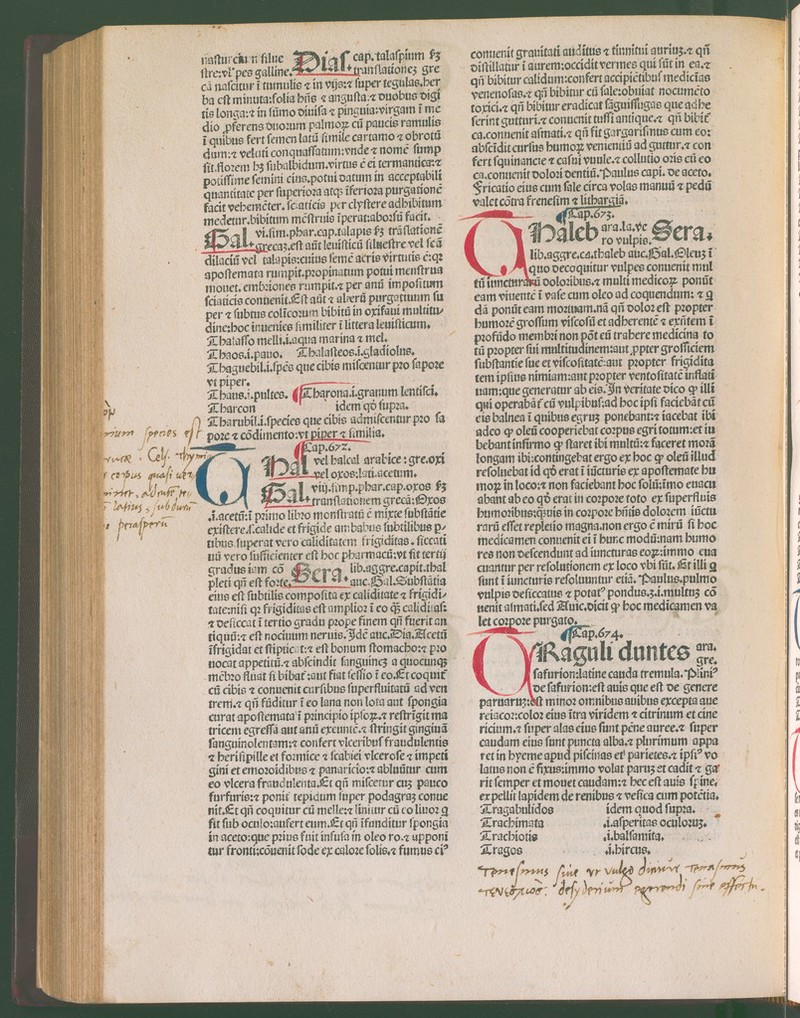 nasturciũ silue Dias. cap. talaspium fz
stre: vl' pes galline. translationez gre
cã nascitur ĩ tumulis ⁊ in vijs: ⁊ super tegulas. her
ba est minuta: folia hñs ⁊ angusta. ⁊ duobus digi
tis longa: ⁊ in sũmo diuisa ⁊ pinguia: virgam ĩ me
dio ꝓferens duorum palmoꝝ cũ paucis ramulis
ĩ quibus fert semen latũ simile cartamo ⁊ obrotũ
dum: ⁊ veluti conquassatum: vnde ⁊ nomẽ sump
sit. florem hz subalbidum. virtus ẽ ei termantica: ⁊
potissime semini eius. potui datum in acceptabili
quantitate per superiora atqз ĩferiora purgationẽ
facit vehemẽter. sciaticis per clystere adhibitum
medetur. bibitum mẽstruis ĩperat: aborsũ facit.
Gal. vi. sim. phar. cap. talapis fz trãslationẽ
grecaz. est aũt leuisticũ siluestre vel senã
dilaciũ vel talapis: cuius semẽ acris virtutis ẽ: qz
apostemata rumpit. propinatum potui menstrua
mouet. embriones rumpit. ⁊ per anũ impositum
sciaticis conuenit. Est aũt ⁊ alterũ purgatiuum su
per ⁊ subtus colicorum bibitũ in oxifaui multitu-
dine: hoc inuenies similiter ĩ littera leuisticum.
Thalasso melli .i. aqua marina ⁊ mel.
Thaos .i. pauo. Thalasteos .i. gladiolus.
Thaguebil .i. spẽs que cibis miscentur pro sapore
vt piper.
Thaus .i. pultes. Tharona .i. granum lentisci.
Tharcon idem qõ supra.
Tharuhil .i. species que cibis admiscentur pro sa
pore ⁊ cõdimento: vt piper ⁊ similia.
Cap. 672.
Thal vel halcal arabice: gre. oxi
vel oxos: lati. acetum.
Gal. viij. simp. phar. cap. oxos fz
translationem grecã: Oxos
.i. acetũ: ĩ primo libro monstratũ ẽ mixte substãtie
existere. s. calide et frigide ambabus subtilibus p
tibus. superat vero caliditatem frigiditas. siccati
uũ vero sufficienter est hoc pharmacũ: vt sit tertij
gradus iam cõ Sera. lib. aggre. capit. thal
pleti qñ est forte. auc. Gal. Substãtia
eius est subtilis composita ex caliditate ⁊ frigidi-
tate: nisi qz frigiditas est amplior ĩ eo qz caliditas:
⁊ desiccat ĩ tertio gradu prope finem qñ fuerit an
tiquũ: ⁊ est nociuum neruis. Idẽ auc. Dia. Acetũ
ĩfrigidat et stipticat: ⁊ est bonum stomacho: ⁊ pro
uocat appetitũ. ⁊ abscindit sanguinez a quocunqз
mẽbro fluat si bibat᷑: aut fiat sessio ĩ eo. Et coquit᷑
cũ cibis ⁊ conuenit cursibus superfluitatũ ad ven
trem. ⁊ qñ fũditur ĩ eo lana non lota aut spongia
curat apostemata ĩ principio ipsoꝝ. ⁊ restrĩgit ma
tricem egressã aut anũ exeuntẽ. ⁊ stringit gingiuã
sanguinolentam: ⁊ confert vlceribus fraudulentis
⁊ herisipille et formice ⁊ scabiei vlcerose ⁊ impeti
gini et emoroidibus ⁊ panaricio: ⁊ abluũtur cum
eo vlcera fraudulenta. Et qñ miscetur cuz pauco
furfuris: ⁊ ponit᷑ tepidum super podagraz conue
nit. Et qñ coquitur cũ melle: ⁊ linitur cũ eo liuor q
fit sub oculo: aufert eum. Et qñ ĩfunditur spongia
in aceto: que prius fuit infusa in oleo ro. ⁊ apponi
tur fronti: cõuenit sode ex calore solis. ⁊ fumus ei⁹
conuenit grauitati auditus ⁊ tinnitui auriuz. ⁊ qñ
distillatur ĩ aurem: occidit vermes qui sũt in ea. ⁊
qñ bibitur calidum: confert accipiẽtibus medicĩas
venenosas. ⁊ qñ bibitur cũ sale: obuiat nocumẽto
toxici. ⁊ qñ bibitur eradicat sãguissugas que adhe
serint gutturi. ⁊ conuenit tussi antique. ⁊ qñ bibit᷑
ca. conuenit asmati. ⁊ qñ fit gargarismus cum eo:
abscĩdit cursus humoꝝ veniẽtiũ ad guttur. ⁊ con
fert squinancie ⁊ casui vuule. ⁊ collutio oris cũ eo
ca. conuenit dolori dentiũ. Paulus capi. de aceto.
Fricatio eius cum sale circa volas manuũ ⁊ pedũ
valet cõtra frenesim ⁊ lithargiã.
Cap. 673.
Thaleb ara. la. ve Sera.
ro vulpis.
lib. aggre. ca. thaleb auc. Gal. Oleuz ĩ
quo decoquitur vulpes conuenit mul
tũ iuncturarũ doloribus. ⁊ multi medicoꝝ ponũt
eam viuentẽ ĩ vase cum oleo ad coquendum: ⁊ q
dã ponũt eam mortuam. nã qñ dolor est propter
humorẽ grossum viscosũ et adherentẽ ⁊ exñtem ĩ
profũdo membri non põt eũ trahere medicina to
tũ propter sui multitudinem: aut ꝓpter grossiciem
substantie sue et viscositatẽ: aut propter frigidita
tem ipsius nimiam: aut propter ventositatẽ inflati
uam: que generatur ab eis. In veritate dico ꝙ illi
qui operabãt᷑ cũ vulpibus: ad hoc ipsi faciebãt cũ
eis balnea ĩ quibus egruz ponebant: ⁊ iacebat ibi
adeo ꝙ oleũ cooperiebat corpus egri totum: et iu
bebant infirmo ꝙ staret ibi multũ: ⁊ faceret morã
longam ibi: contingebat ergo ex hoc ꝙ oleũ illud
resoluebat id qõ erat ĩ iũcturis ex apostemate hu
moꝝ in loco: ⁊ non faciebant hoc solũ: ĩmo euacu
abant ab eo qõ erat in corpore toto ex superfluis
humoribus: quis in corpore hñtis dolorem iũctu
rarũ esset repletio magna. non ergo ẽ mirũ si hoc
medicamen conuenit ei ĩ hunc modũ: nam humo
res non descendunt ad iuncturas eoꝝ: immo eua
cuantur per resolutionem ex loco vbi sũt. Et illi q
sunt ĩ iuncturis resoluuntur etiã. Paulus. pulmo
vulpis desiccatus ⁊ potat⁹ pondus .3. i. multuz cõ
uenit asmati. sed Auic. dicit ꝙ hoc medicamen va
let corpore purgato.
Cap. 674.
Traguli duntes ara.
gre.
safurion: latine cauda tremula. Plini⁹
de safurion: est auis que est de genere
paruaruz: est minor omnibus auibus excepta aue
reiacor: color eius ĩtra viridem ⁊ citrinum et cine
ricium. ⁊ super alas eius sunt pẽne auree. ⁊ super
caudam eius sunt puncta alba. ⁊ plurimum appa
ret in hyeme apud piscinas et parietes. ⁊ ipsi⁹ vo
latus non ẽ fixus: immo volat paruz et cadit ⁊ ga
rit semper et mouet caudam: ⁊ hec est auis spine.
expellit lapidem de renibus ⁊ vesica cum potẽtia.
Tragabulidos idem quod supra.
Trachimata .i. asperitas oculoruz.
Trachiotis .i. balsamita.
Tragos .i. hircus.
species est
Cels.
corpus quasi
latius, subdurũ
perasperũ
Tenesmus siue vt vulgo dicitur tenasmus
τενεσμος: desyderium egerendi sine effectu.